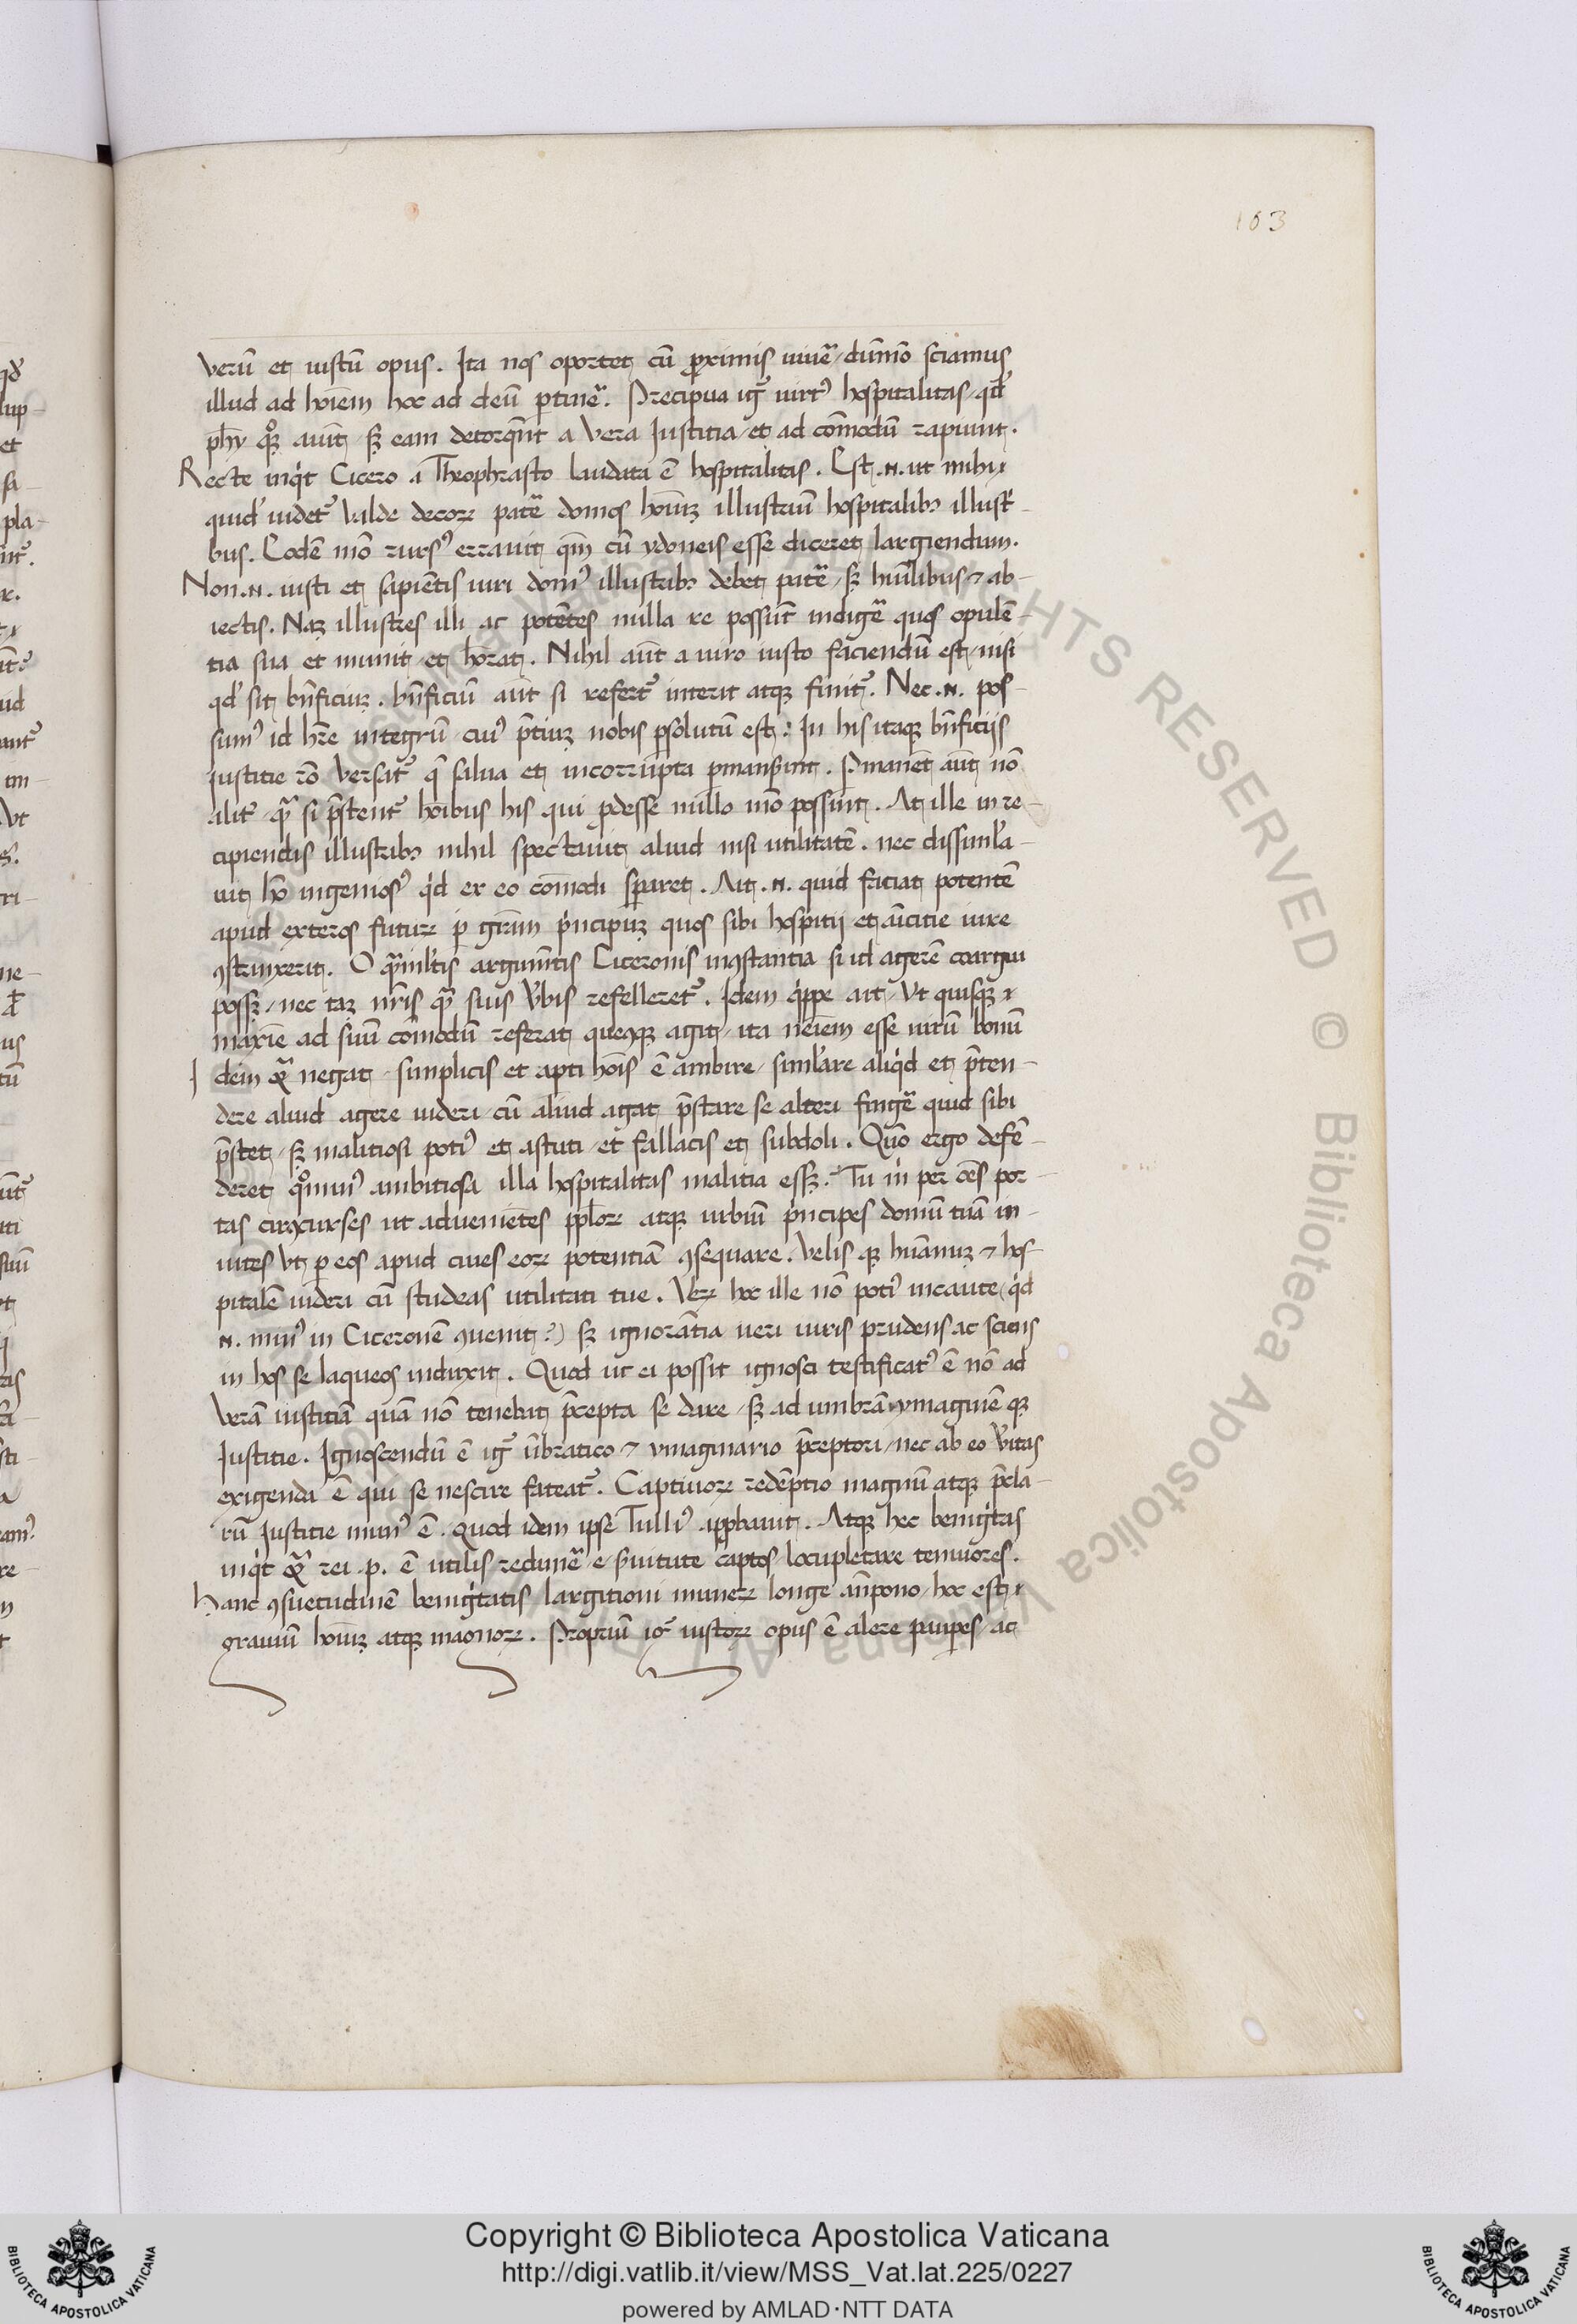 103
verū et iustū opus. Ita nos oportet cū proximis uiuē, dūmō sciamus
illud ad hoīem hoc ad deū ptinē. Precipua ig̃ uirtꝰ hospitalitas, qd̓
phȳ qͦꝫ aiūt, sꝫ eam detorquēt a vera Iustitia, et ad cōmodū rapiunt.
Recte inqͥt Cicero a Theophrasto laudata ē hospitalitas. Est .N. ut mihi
quid̓ uidet᷑ valde decoꝝ patē domos hoīuꝫ illustriū hospitalibꝫ illust̓-
bus. Eodē mō rursꝰ errauit qm̄ cū ydoneis esse diceret largiendum.
Non .N. iusti et sapiētis uiri domꝰ illustribꝫ debet patē, sꝫ huīlibus ⁊ ab-
iectis. Naꝫ illustres illi ac potētes nulla re possūt indigē quos opulē-
tia sua et munit, et hōrat. Nihil aūt a uiro iusto faciendū est, nisi
qd̓ sit bn̄ficiuꝫ. bn̄ficiū aūt si refert᷑ interit atqꝫ finit᷑. Nec .N. pos-
sumꝰ id hr̄e integrū, cuiꝰ p̄tiuꝫ nobis psolutū est. In his itaqꝫ bn̄ficijs
Iustitie rō versat᷑ q̄ salua et incorrūpta pmanserint. Pmanēt aūt nō
alit᷑ qͣꝫ si p̄stent᷑ hoībus his qui prodesse nullo mō possunt. At ille in re-
cipiendis illustribꝫ nihil spectauit aliud nisi utilitatē. nec dissimla-
uit hō ingeniosꝰ qͥd ex eo cōmodi speraret. Ait .N. quid faciat potentē
apud exteros future p grām pͥncipuꝫ quos sibi hospitij et amīcitie iure
ꝯstrinxerit. O qͣmltis argumētis Ciceronis inꝯstantia si id agerē coargui
possꝫ, nec taꝫ nr̄is qͣꝫ suis vbis refelleret᷑. Idem qͥppe ait, Vt quisqꝫ
maxīe ad suū cōmodū referat, queqꝫ agit, ita neīem esse uirū bonū
Idem qͣ negat, simplicis et apti hoīs ē ambire, simlare aliqͥd et p̄ten-
dere aliud agere uideri cū aliud agat, p̄stare se alteri fingē quid sibi
p̄stet, sꝫ malitiosi potiꝰ et astuti, et fallacis et subdoli. Quō ergo defē-
deret qͦminꝰ ambitiosa illa hospitalitas malitia essꝫ. Tu in per oēs por-
tas circūcurses ut aduenietēs ppl̓oꝝ atqꝫ urbiū pͥncipes domū tuā in-
uites Vt p eos apud ciues eoꝝ potentiā ꝯsequare. Velis qꝫ humānuꝫ ⁊ hos-
pitalē uideri cū studeas utilitati tue. Veꝝ hoc ille nō potiꝰ incaute, qͥd
.N. minꝰ in Ciceronē ꝯuenit? sꝫ ignorātia ueri iuris prudens ac sciens
in hos se laqueos induxit. Quod ut ei possit ignosci testificatꝰ ē nō ad
veram iustitiā quā nō tenebat p̄cepta se dare, sꝫ ad umbrā ymaginē qꝫ
Iustitie. Ignoscendū ē ig̃ ūbratico ⁊ ymaginario p̄ceptori, nec ab eo v̓itas
exigenda ē qui se nescire fateat᷑. Captiuoꝝ redēptio magnū atqꝫ p̄cla-
rū Iustitie munꝰ ē. quod idem ipse Tulliꝰ approbauit. Atqꝫ hec benigͥtas
inqͥt qͣ rei .p. ē utilis redimē e seruitute captos, locupletare tenuiores.
Hanc ꝯsuetudinē benigͥtatis largitioni muneꝝ longe an̄pono, hoc est
grauiū hoīuꝫ atqꝫ magnoꝝ. Propriū ig̃ iustoꝝ opus ē alere pauperes, ac
Copyright © Biblioteca Apostolica Vaticana
http://digi.vatlib.it/view/MSS_Vat.lat.225/0227
powered by AMLAD·NTT DATA